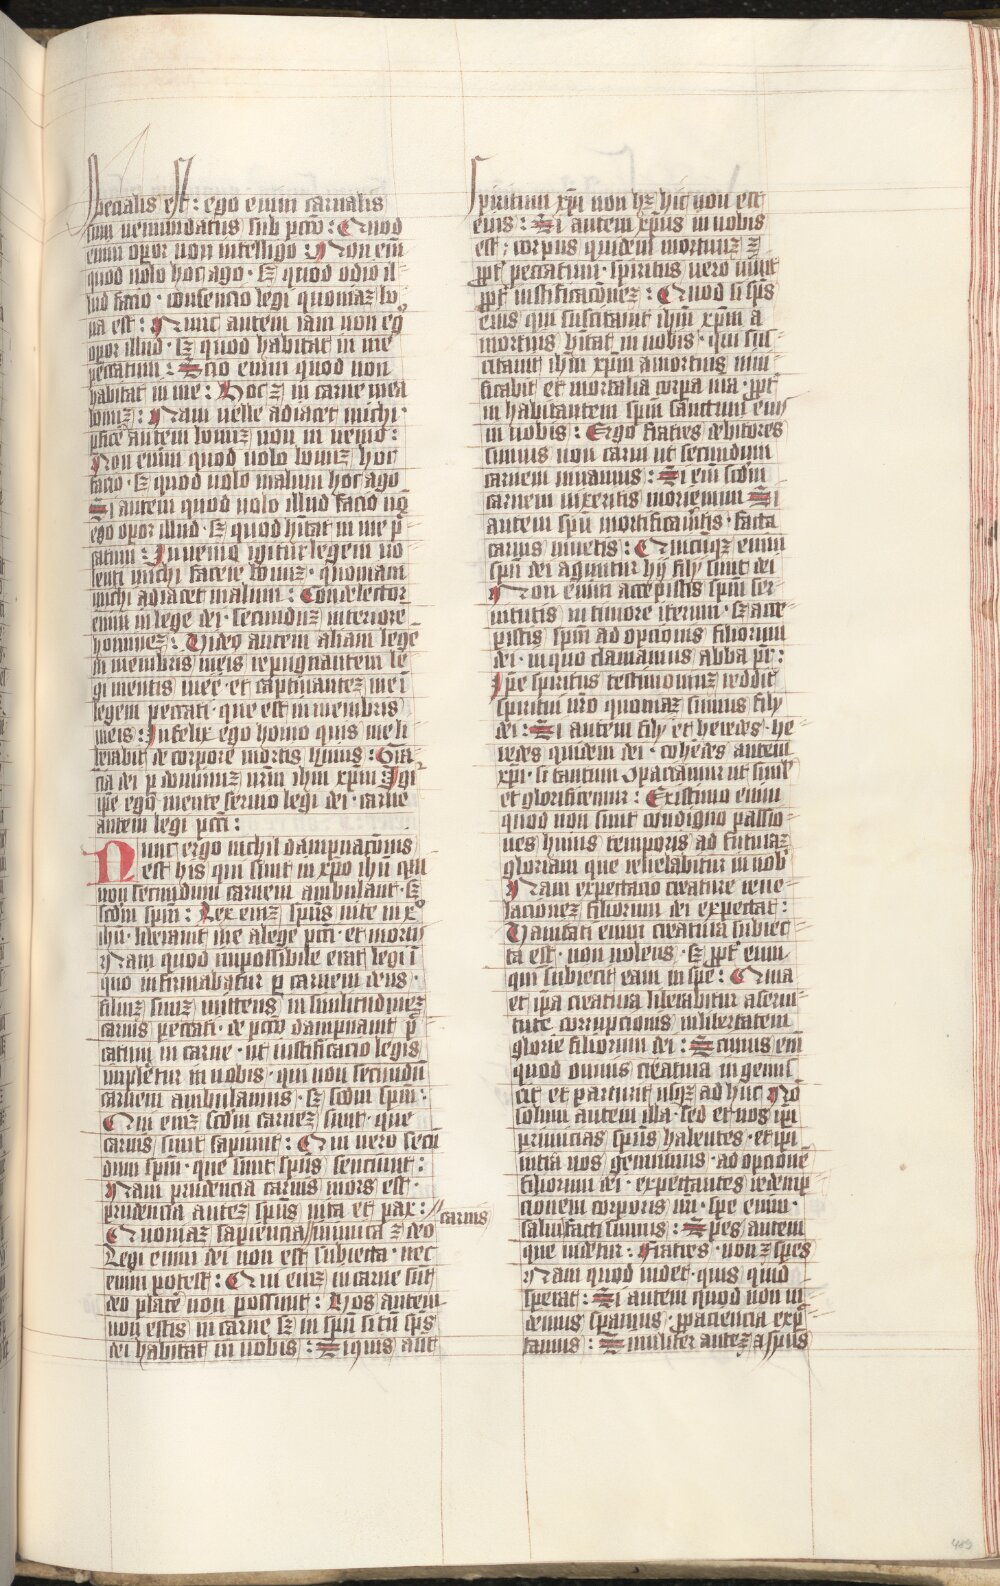 specialis est : ego enim carnalis
sum venundatus sub pctō : Quod
enim opor non intelligo : Non eni
quod nolo hoc ago · sz quod odio il
lud facio · consencio legi quoniaz bo
na est : Nunc autem iam non eg°
opor illud · sz quod habitat in me
peccatum : Scio enim quod non
habitat in me : Hoc ē in carne mea
bonuz : Nam velle adiacet michi ·
pficē autem bonuz non in uenio :
Non enim quod uolo bonuz hoc
facio · sz quod nolo malum hoc ago
Si autem quod nolo illud facio nō
ego opor illud · sz quod hītat in me p̄
catum : Inuenio igitur legem uo
lenti michi facere bonuz · quoniam
michi adiacet malum : Condelector
enim in lege dei · secunduz interiorē
hominez : Video autem aliam legē
in membris meis repugnantem le
gi mentis mee · et captiuantez me ī
legem peccati · que est in membris
meis : Infelix ego homo quis me li
berabit de corpore mortis huius : Gra
cia dei p dominuz nrm ihm xpm Igi
ipe ego mente seruio legi dei · carne
autem legi pcti :
Nunc ergo nichil dampnacionis
est his qui sunt in xpo ihu qui
non secundum carnem ambulant · sz
scdm spm : Lex enīz spūs uite in x°
ihu · liberauit me a lege pcti · et mortis
Nam quod impossibile erat legi ī
quo infirmabatur p carnem deus ·
filiuz suuz mittens in similitudinez
carnis peccati · de pctō dampnauit p̄
catum in carne · ut iustificacio legis
impletur in nobis · qui non secundū
carnem ambulamus · sz scdm spm :
Qui enīz scdm carnez sunt · que
carnis sunt sapiunt : Qui uero secū
dum spm · que sunt spūs senciunt :
Nam prudencia carnis mors est ·
prudencia autez spūs uita et pax : //
Quoniaz sapiencia // inimica ē deo
carnis
Legi enim dei non est subiecta · nec
enim potest : Qui enīz in carne sūt
deo placē non possunt : Vos autem
non estis in carne sz in spū si tn̄ spūs
dei habitat in uobis : Siquis aut
Spiritum xpi non hz hic non est
eius : Si autem xpus in uobis
est ; corpus quidem mortuuz ē
ppt peccatum · spiritus uero uiuit
ppt iustificacōnez : Quod si spūs
eius qui suscitauit ihm xpm a
mortuis hītat in uobis · qui sus
citauit ihm xpm a mortuis uiui
ficabit et mortalia corpa ura · ppt
in habitantem spm sanctum eius
in uobis : Ergo fratres debitores
sumus non carni ut secundum
carnem uiuamus : Si eni scdm
carnem uixeritis moriemini Si
autem spū mortificaūitis · facta
carnis uiuetis : Quicūqz enim
spū dei aguntur hij filij sunt dei
Non enim accepistis spm ser
uitutis in timore iterum · sz acce
pistis spm ad opcionis filiorum
dei · in quo clamamus abba pr̄ :
Ipe spiritus testimoniuz reddit
spiritui nr̄o quoniaz sumus filij
dei : Si autem filij et heredes · he
redes quidem dei · cohēdes autem
xpi · si tantum gpaciamur ut simul
et glorificemur : Existimo enim
quod non sunt condigne passio
nes huius temporis ad futuraz
gloriam que reuelabitur in nob
Nam expectacio creature reue
lacionez filiorum dei expectat :
Vanitati enim creatura subiec
ta est · non uolens · sz ppt eum ·
qui subiecit eam in spe : Quia
et ipa creatura liberabitur a serui
tute corrupcionis in libertatem
glorie filiorum dei : Scimus eni
quod omnis creatura in gemis
cit et parturit usqz ad huc Nō
solum autem illa · sed et nos ipi
primicias spūs habentes · et ipi
intra nos gemimus · ad opcionē
filiorum dei · expectantes redemp
cionem corporis nr̄i · spe enim ·
saluifacti sumus : Spes autem
que uidetur · fratres · non ē spes
Nam quod uidet · quis quid
sperat : Si autem quod non ui
demus spamus · p paciencia exp
tamus : Similiter autez a spūs
489